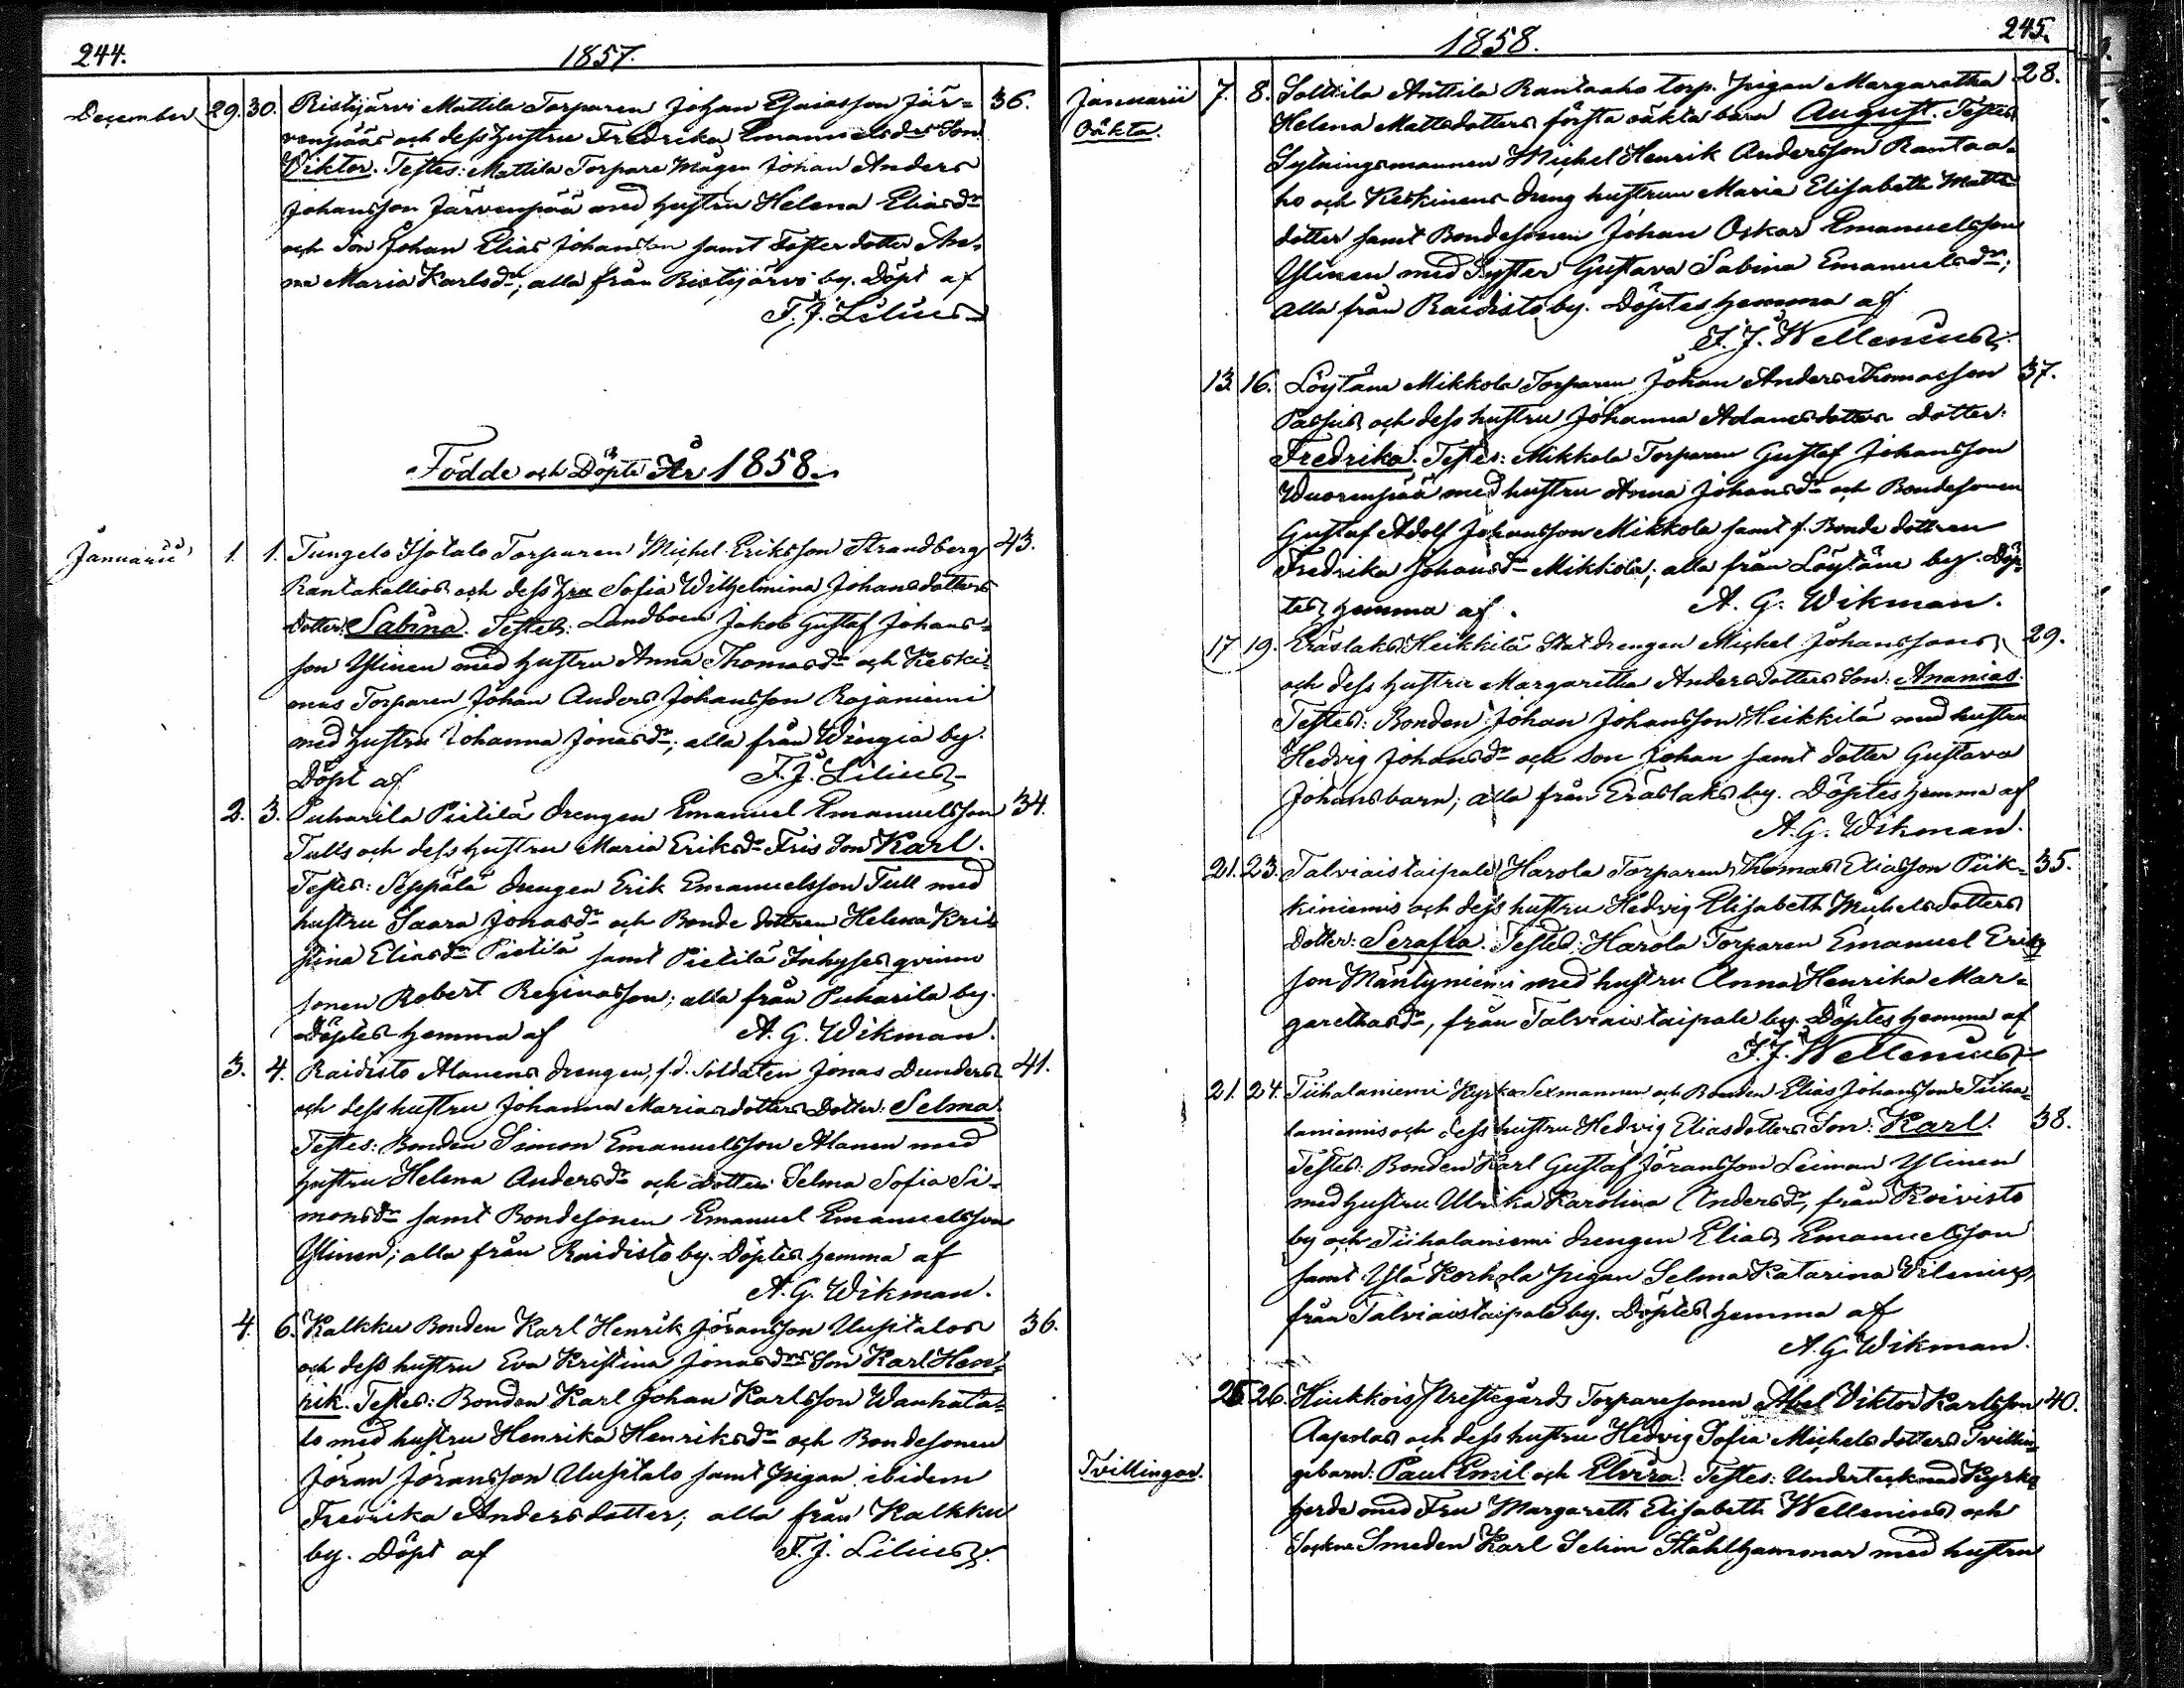 244.
1857.
December 29. 30. Ristijärvi Mattila Torparen Johan Esaiasson Jär= 36.
venpääs och dess hustru Fredrika Emanuelsdrs Son
Viktor. Testes: Mattila Torpare Mågen Johan Anders
Johansson Järvenpää med hustru Helena Eliasdr
och Son Johan Elias Johansson samt Fosterdotter
na Maria Karlsdr; alla från Ristijärvi by. Döpt af
F. J. Lilius
Födde och Döpte År 1858.
Januarii 1. 1. Tungelo Isotalo Torparen Michel Eriksson Strandberg 43.
Rantakallios och dess hru Sofia Wilhelmina Johansdotters
dotter: Sabina. Testes: Landboen Jakob Gustaf Johans=
son Ylinen med hustru Anna Thomasdr och Keski=
nens Torparen Johan Anders Johansson Rajaniemi
med hustru Johanna Jonasdr; alla från Wingia by.
Döpt af F. J. Lilius
2. 3. Puharila Pietilä drengen Emanuel Emanuelsson 34.
Tulls och dess hustru Maria Eriksdr Fris Son Karl.
Testes: Seppälä drengen Erik Emanuelsson Tull med
hustru Saara Jonasdr och Bondedottren Helena Kri=
stina Eliasdr Pietilä samt Pietilä Inhysesqvinno
sonen Robert Reginasson; alla från Puharila by.
Döptes hemma af A. G. Wikman.
3. 4. Raidisto Alanens drengen, f.d. Soldaten Jonas Dunders 41.
och dess hustru Johanna Mariasdotters Dotter: Selma.
Testes: Bonden Simon Emanuelsson Alanen med
hustru Helena Andersdr och dotter Selma Sofia Si=
monsdr samt Bondesonen Emanuel Emanuelsson
Ylinen; alla från Raidisto by. Döptes hemma af
A. G. Wikman.
4. 6. Kalkku Bonden Karl Henrik Jöransson Uusitalos 36.
och dess hustru Eva Kristina Jonasdrs Son Karl Hen=
rik. Testes: Bonden Karl Johan Karlsson Wanhata=
lo med hustru Henrika Henriksdr och Bondesonen
Jöran Jöransson Uusitalo samt Pigan ibidem
Fredrika Andersdotter; alla från Kalkku
by. Döpt af F. J. Lilius
1858.
245.
Januarii 7. 8. Solttila Anttila Rantaaho torp. Pigan Margaretha 28.
Oäkta. Helena Mattsdotters första oäkta barn August. Testes
Sytningsmannen Michel Henrik Andersson Rantaa=
ho och Keskinens dreng hustrun Maria Elisabeth Matts
dotter samt Bondesonen Johan Oskar Emanuelsson
Ylinen med Syster Gustava Sabina Emanuelsdr;
alla från Raidisto by. Döptes hemma af
F. J. Wellenius.
13. 16. Löytäne Mikkola Torparen Johan Anders Thomasson 37.
Passus och dess hustru Johanna Adamsdotters dotter:
Fredrika. Testes: Mikkola Torparen Gustaf Johansson
Wuorenpää med hustru Anna Johansdr och Bondesonen
Gustaf Adolf Johansson Mikkola samt f. Bonde dottren
Fredrika Johansdr Mikkola; alla från Löytäne by. Döp=
tes hemma af A. G. Wikman.
17 19. Eräslaks Heikkilä Statdrengen Michel Johanssons 29.
och dess hustru Margaretha Andersdotters Son: Ananias.
Testes: Bonden Johan Johansson Heikkilä med hustru
Hedvig Johansdr och Son Johan samt dotter Gustava
Johansbarn; alla från Eräslaks by. Döptes hemma af
A. G. Wikman.
21. 23. Talviaistaipale Harola Torparen Thomas Eliasson Piik= 35.
kiniemis och dess hustru Hedvig Elisabeth Michelsdotters
Dotter: Serafia. Testes: Harola Torparen Emanuel Eriks
son Mäntyniemi med hustru Anna Henrika Mar=
garethasdr, från Talviaistaipale by. Döptes hemma af
F. J. Wellenius
21. 24. Tiihalaniemi Kyrko Sexmannen och Bonden Elias Johansson Tiiha=
laniemis och dess hustru Hedvig Eliasdotters Son: Karl. 38.
Testes: Bonden Karl Gustaf Jöransson Leiman Ylinen
med hustru Ulrika Karolina Andersdr, från Koivisto
by och Tiihalaniemi drengen Elias Emanuelsson
samt Ylä Korkola pigan Selma Katarina Vilenius,
från Talviaistaipale by. Döptes hemma af
A. G. Wikman.
25. 26. Hiukkois Prestegårds Torparesonen Abel Viktor Karlsson 40.
Aapolas och dess hustru Hedvig Sofia Michelsdotters Tvillin=
Tvillingar. gebarn: Paul Emil och Elvira. Testes: Undertecknad Kyrko
herde med Fru Margareth Elisabeth Wellenius och
Sockne Smeden Karl Selim Ståhlhammar med hustru